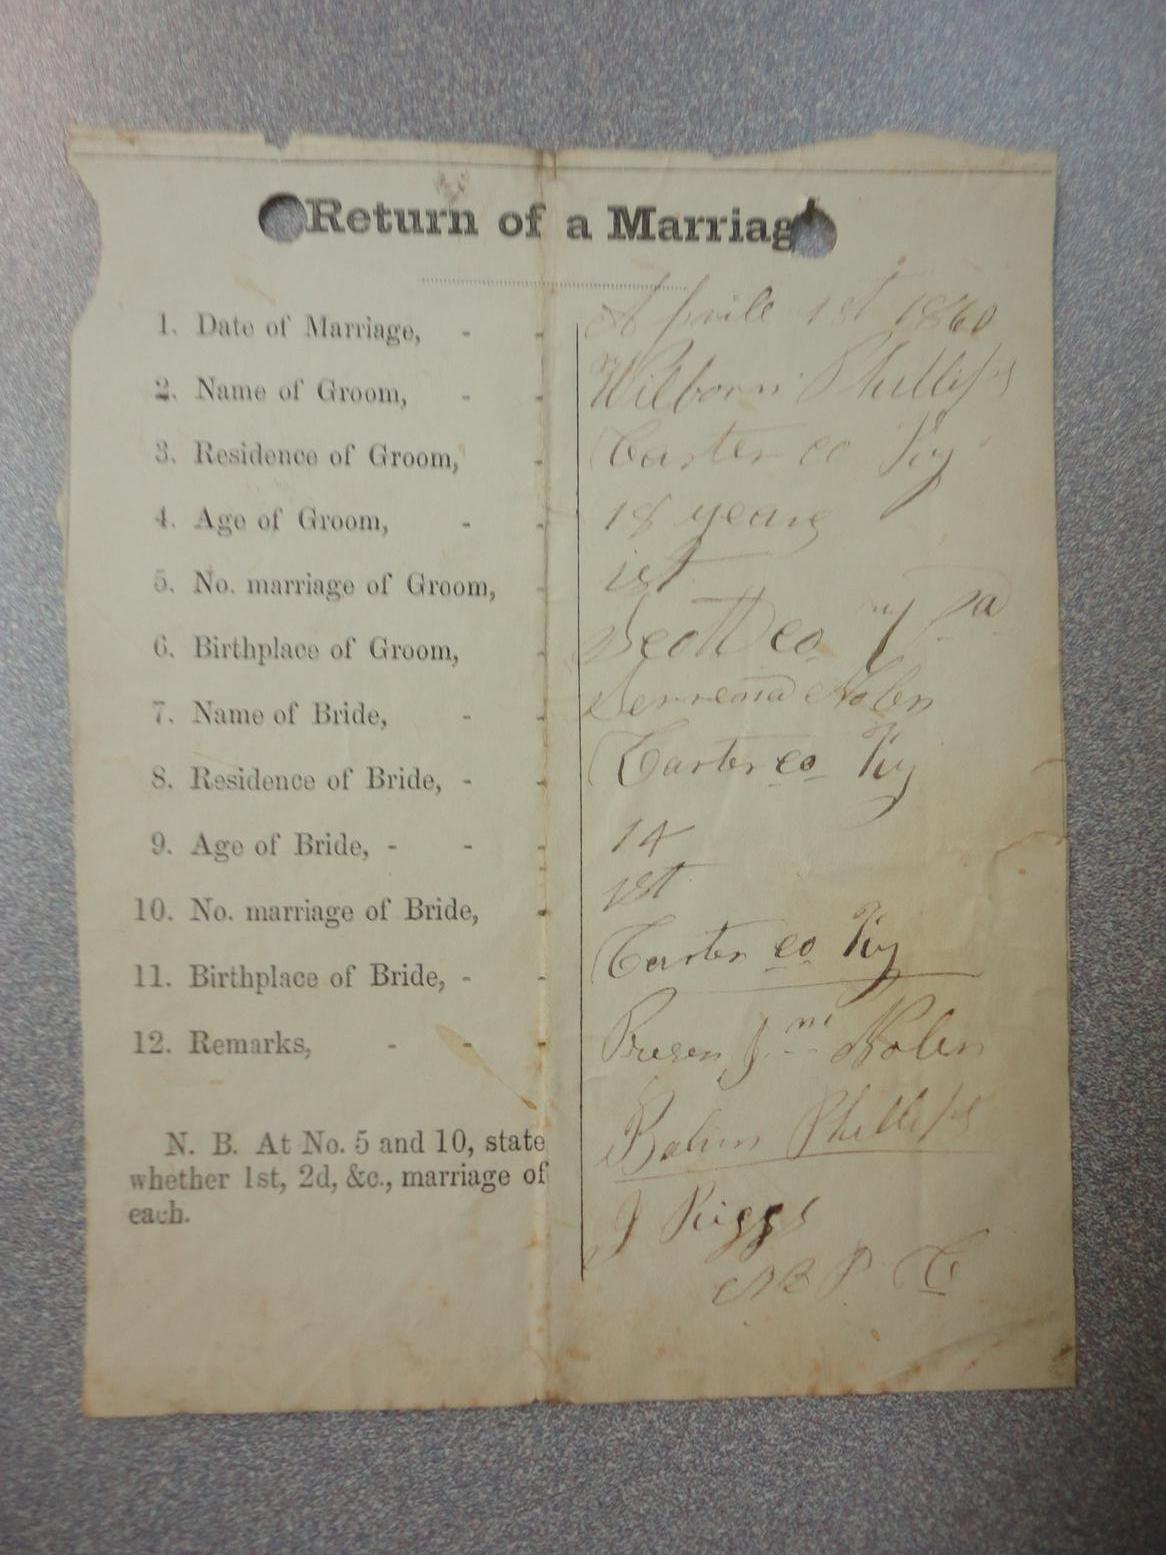 Return of a Marriag
1. Date of Marriage, - - Aprile 1st 1860
2. Name of Groom, - - Wilborn Phillips
3. Residence of Groom, - Carter co Ky
4. Age of Groom, - - 18 years
5. No. marriage of Groom, - 1st
6. Birthplace of Groom, - Scott co
7. Name of Bride, - - Serrena Nolen
8. Residence of Bride, - - Carter co Ky
9. Age of Bride, - - - 14
10. No. marriage of Bride, - 1st
11. Birthplace of Bride, - - Carter co Ky
12. Remarks, - - - Presen Nolen
Phillips
N. B. At No. 5 and 10, state
whether 1st, 2d, &c., marriage of
each.
J Riggs